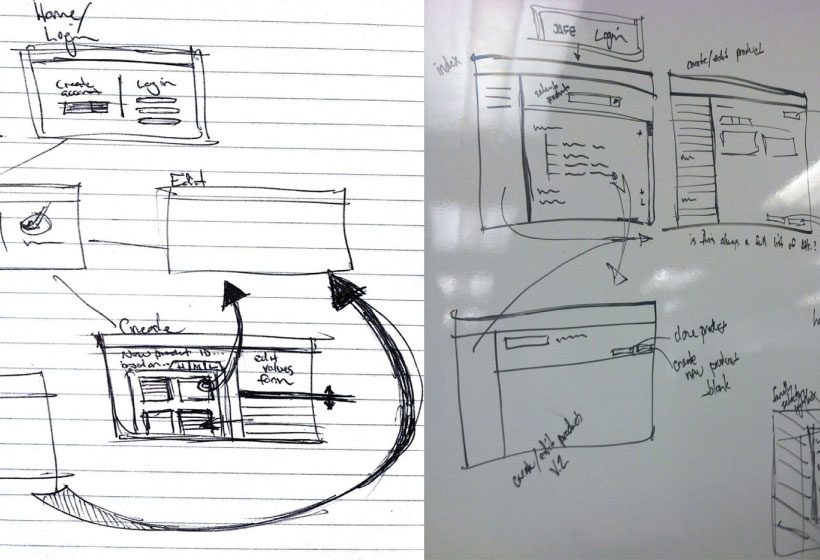 Home/
Login
Create
account
Login
Edit
Create
New product ID...
based on...
H M L
edit
values
form
SAFE Login
index
select
product
create/edit product
is this always a full list of
clone product
create
new product
blank
create/edit product
V.2